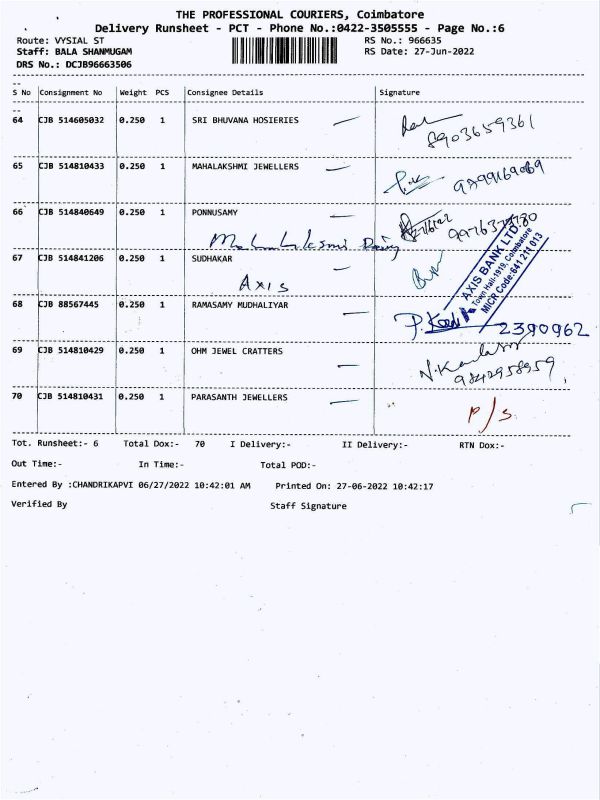 THE PROFESSIONAL COURIERS, Coimbatore
Delivery Runsheet - PCT - Phone No.:0422-3505555 - Page No.:6
Route: VYSIAL ST RS No.: 966635
Staff: BALA SHANMUGAM RS Date: 27-Jun-2022
DRS No.: DCJB96663506
S No Consignment No Weight PCS Consignee Details Signature
64 CJB 514605032 0.250 1 SRI BHUVANA HOSIERIES
8903659361
65 CJB 514810433 0.250 1 MAHALAKSHMI JEWELLERS
9899169069
66 CJB 514840649 0.250 1 PONNUSAMY
67 CJB 514841206 0.250 1 SUDHAKAR
Axis
AXIS BANK LTD.
Town Hall-1919, Coimbatore
MICR Code:641 211 013
68 CJB 88567445 0.250 1 RAMASAMY MUDHALIYAR
2390962
69 CJB 514810429 0.250 1 OHM JEWEL CRATTERS
9842958959
70 CJB 514810431 0.250 1 PARASANTH JEWELLERS
P/S
Tot. Runsheet:- 6 Total Dox:- 70 I Delivery:- II Delivery:- RTN Dox:-
Out Time:- In Time:- Total POD:-
Entered By :CHANDRIKAPVI 06/27/2022 10:42:01 AM Printed On: 27-06-2022 10:42:17
Verified By Staff Signature